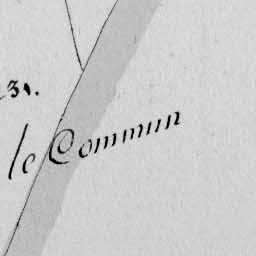 31.
le Commun